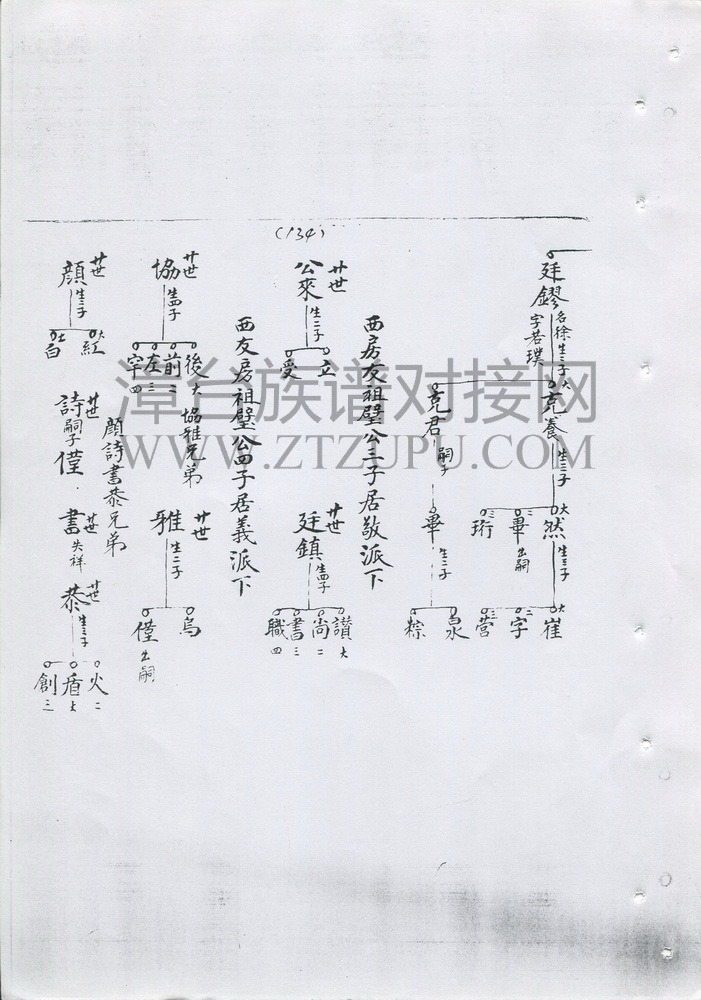 (134)
廷鏐 名徐 字若璞 生三子
大 克養 生三子
大 然 生三子
大 崔
二 字
三 营
二 畢 出嗣
三 珩
克君 嗣子
畢 生二子
泉
粽
西房友祖璧公三子居敬派下
廿世 公來 生二子
立
受
廿世 廷鎮 生四子
讃 大
尚 二
書 三
職 四
西友房祖璧公四子居義派下
廿世 協 生四子
後 大
前 二
左 三
宰 四
協雅兄弟
廿世 雅 生二子
烏
僅 出嗣
顏詩書恭兄弟
廿世 顏 生二子
大 紅
二 白
廿世 詩 嗣子 僅
廿世 書 失祥
廿世 恭 生三子
火 二
盾 大
創 三
漳台族谱对接网
WWW.ZTZUPU.COM